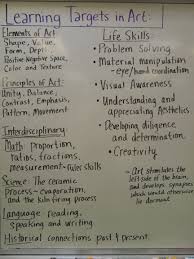 Learning Targets in Art:
Elements of Art
Shape, Value,
Form, Depth,
Positive Negative Space,
Color and Texture
Principles of Art:
Unity, Balance,
Contrast, Emphasis,
Pattern, Movement
Interdisciplinary:
Math Proportion,
ratios, fractions,
measurement-ruler skills
Science: The ceramic
Process-evaporation-
and the kiln firing process
Language reading,
speaking and writing
Historical connections past & present.
Life Skills
• Problem Solving
• Material manipulation
- eye/hand coordination
• Visual Awareness
• Understanding and
appreciating Aesthetics
• Developing diligence
and determination.
• Creativity
• Art stimulates the
left side of the brain,
and develops synapses
which would otherwise
lie dormant